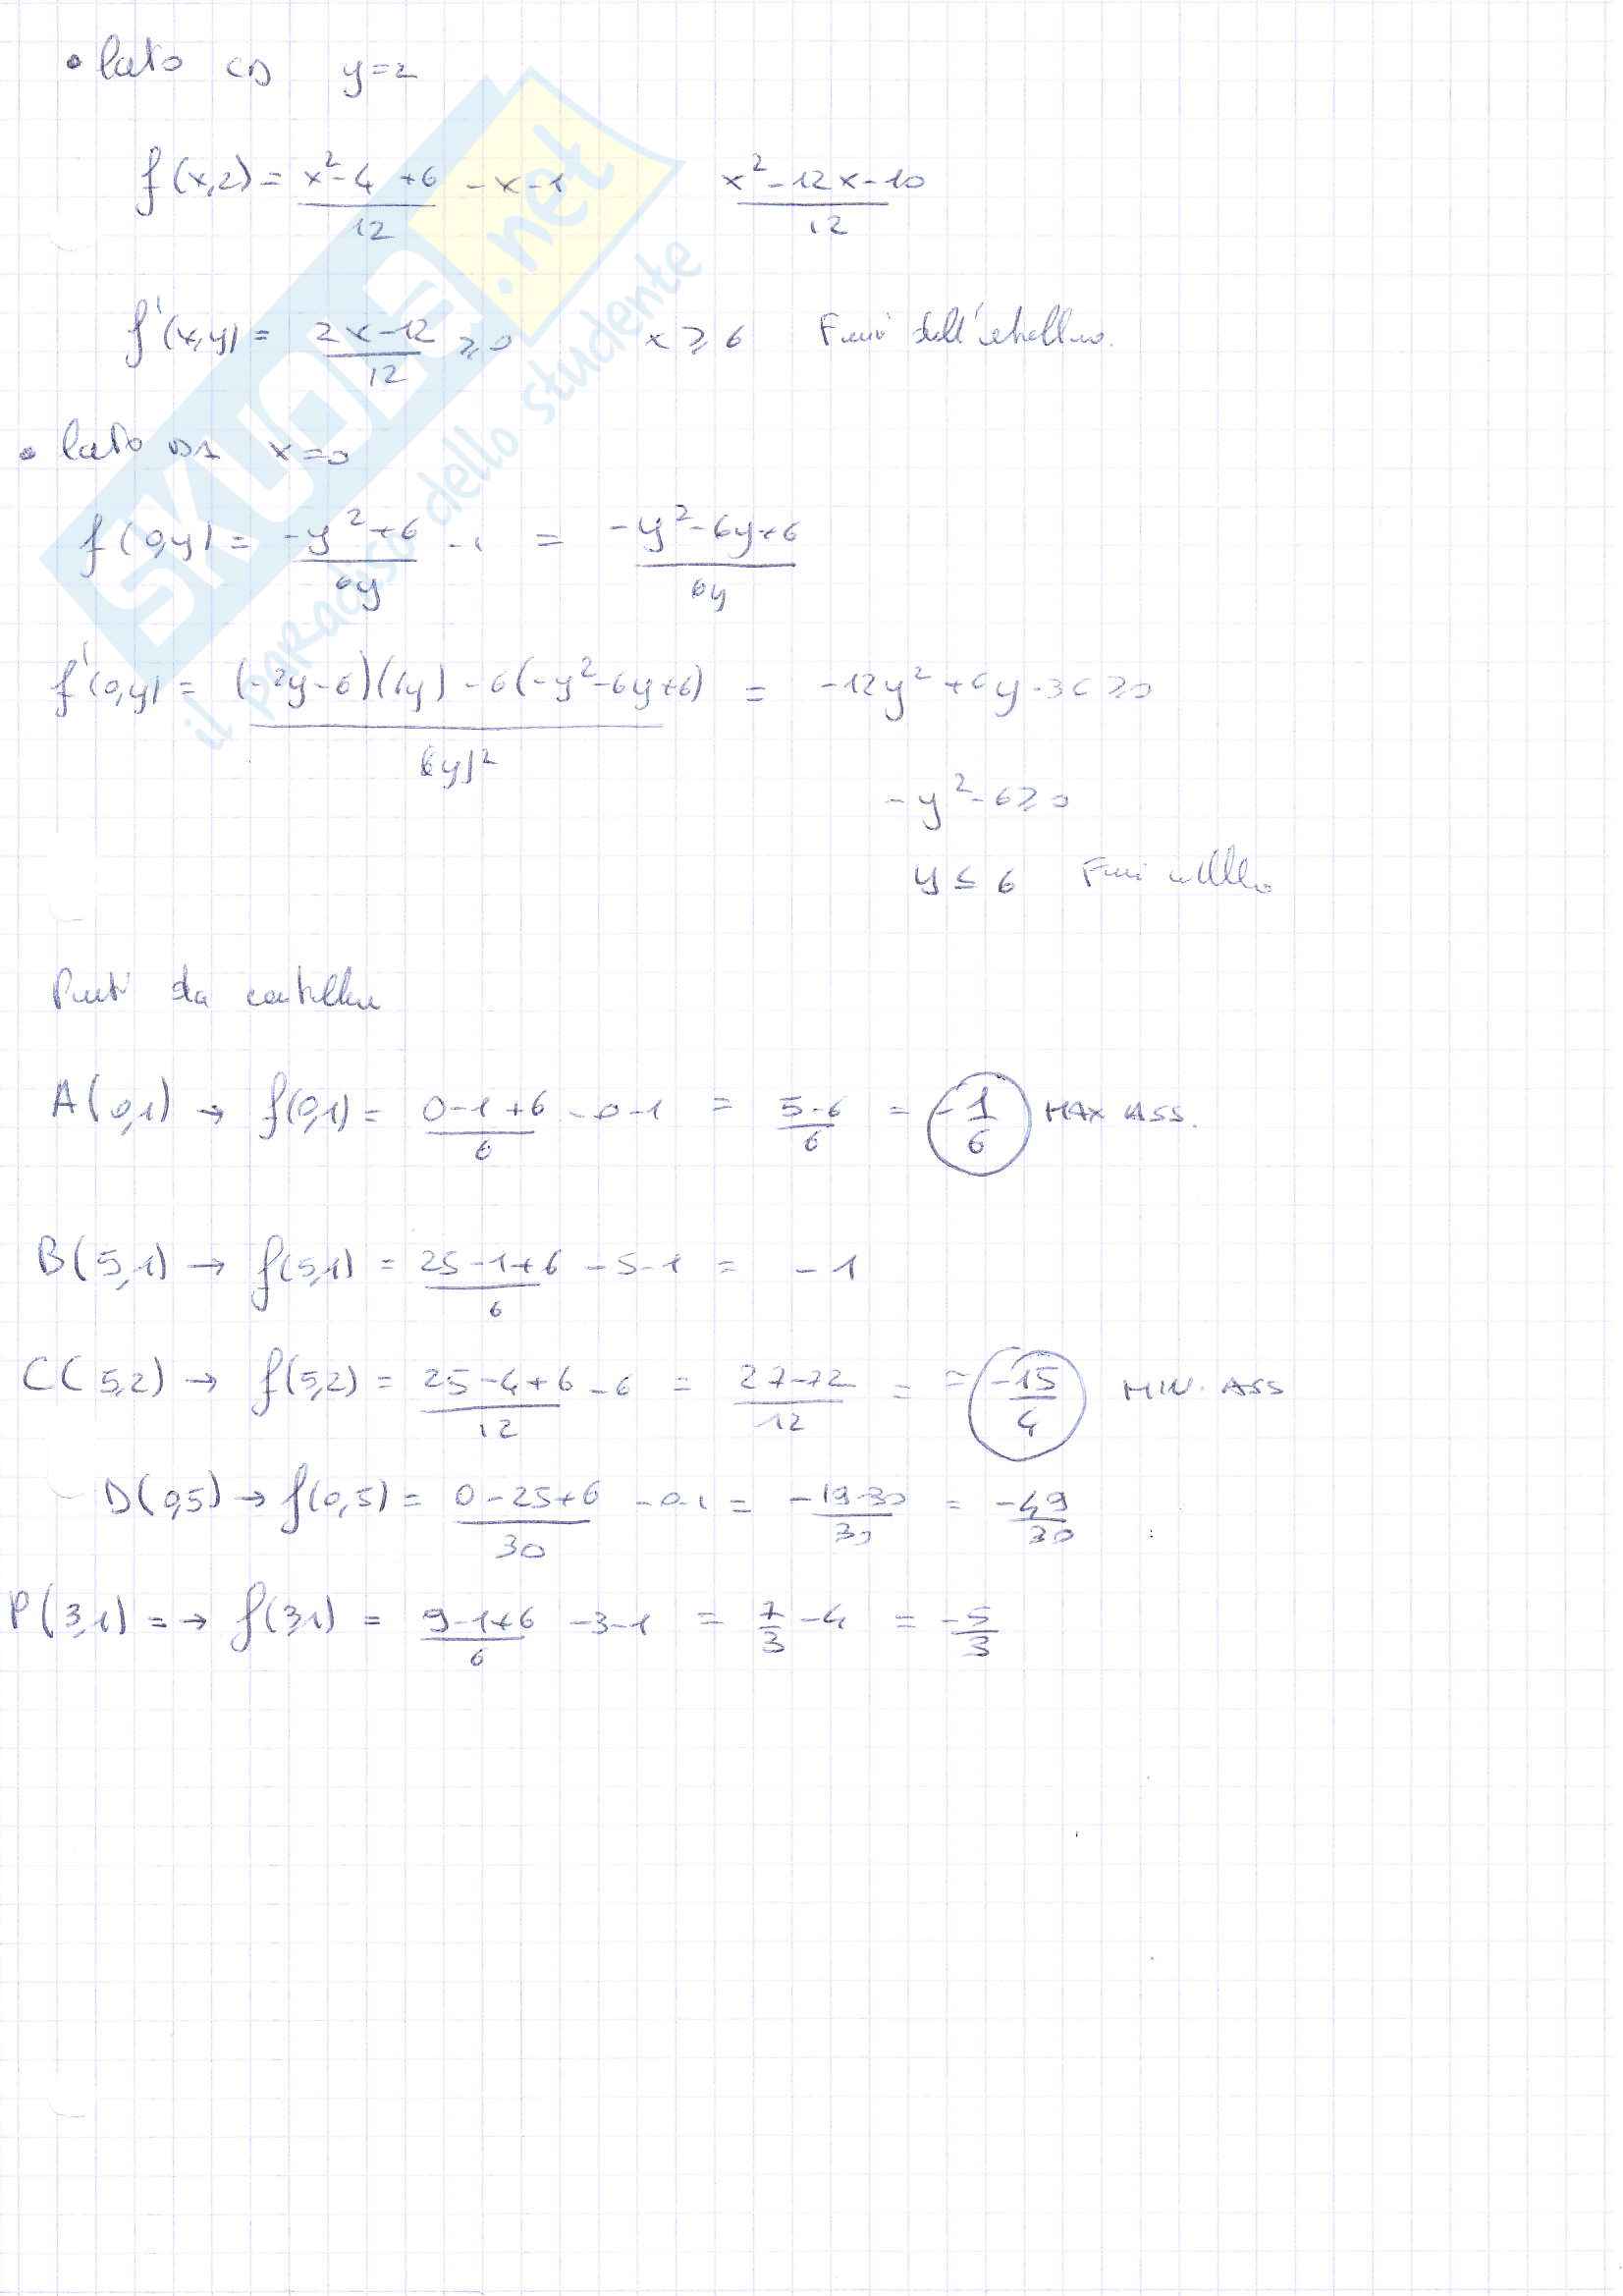 • lato CD y=2
f(x,2) = (x²-4+6)/12 -x-1 (x²-12x-10)/12
f'(x,y) = (2x-12)/12 ≥0 x≥6 Fuori dall'intervallo.
• lato DA x=0
f(0,y) = (-y²+6)/6y -1 = (-y²-6y+6)/6y
f'(0,y) = ((-2y-6)(6y)-6(-y²-6y+6))/6y)² = -12y²+6y-36≥0
-y²-6≥0
y≤6 Fuori
Punti da controllare
A(0,1) → f(0,1) = (0-1+6)/6 -0-1 = (5-6)/6 = -1/6 MAX ASS.
B(5,1) → f(5,1) = (25-1+6)/6 -5-1 = -1
C(5,2) → f(5,2) = (25-4+6)/12 -6 = (27-72)/12 = = -15/4 MIN. ASS
D(0,5) → f(0,5) = (0-25+6)/30 -0-1 = (-19-30)/30 = -49/30
P(3,1) = → f(3,1) = (9-1+6)/6 -3-1 = 7/3 -4 = -5/3
SKUOLA.net
il paradiso dello studente